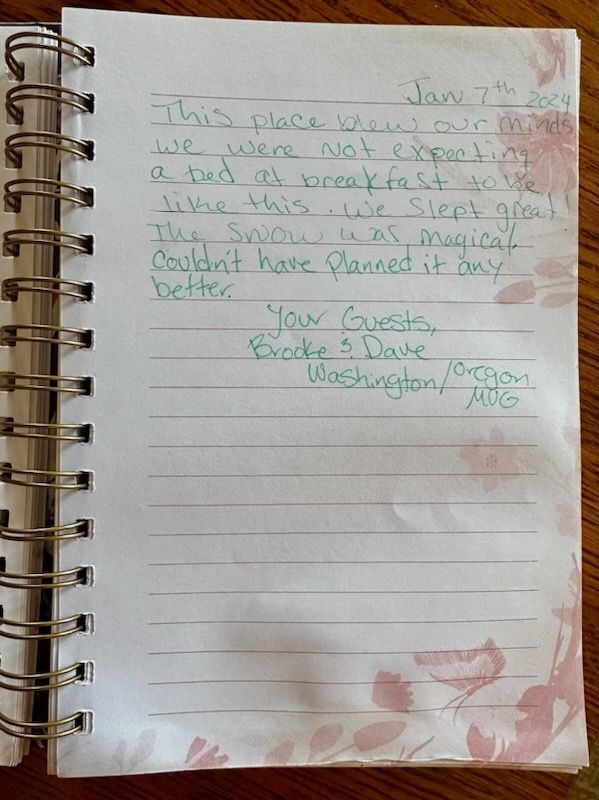 Jan 7th 2024
This place blew our minds
we were not expecting
a bed at breakfast to be
like this. We slept great!
The snow was magical.
Couldn't have planned it any
better.
Your Guests,
Brooke & Dave
Washington/Oregon
MUG